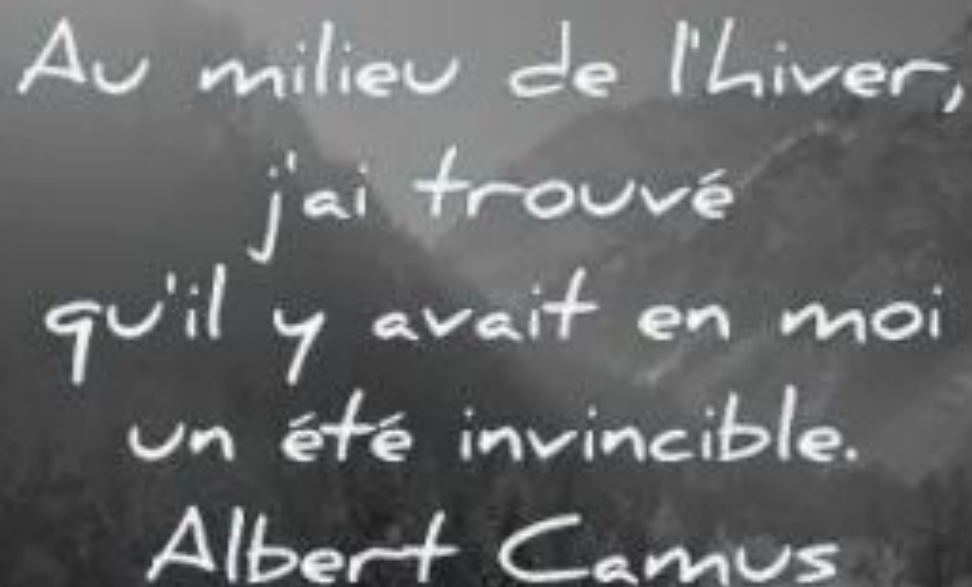 Au milieu de l'hiver,
j'ai trouvé
qu'il y avait en moi
un été invincible.
Albert Camus